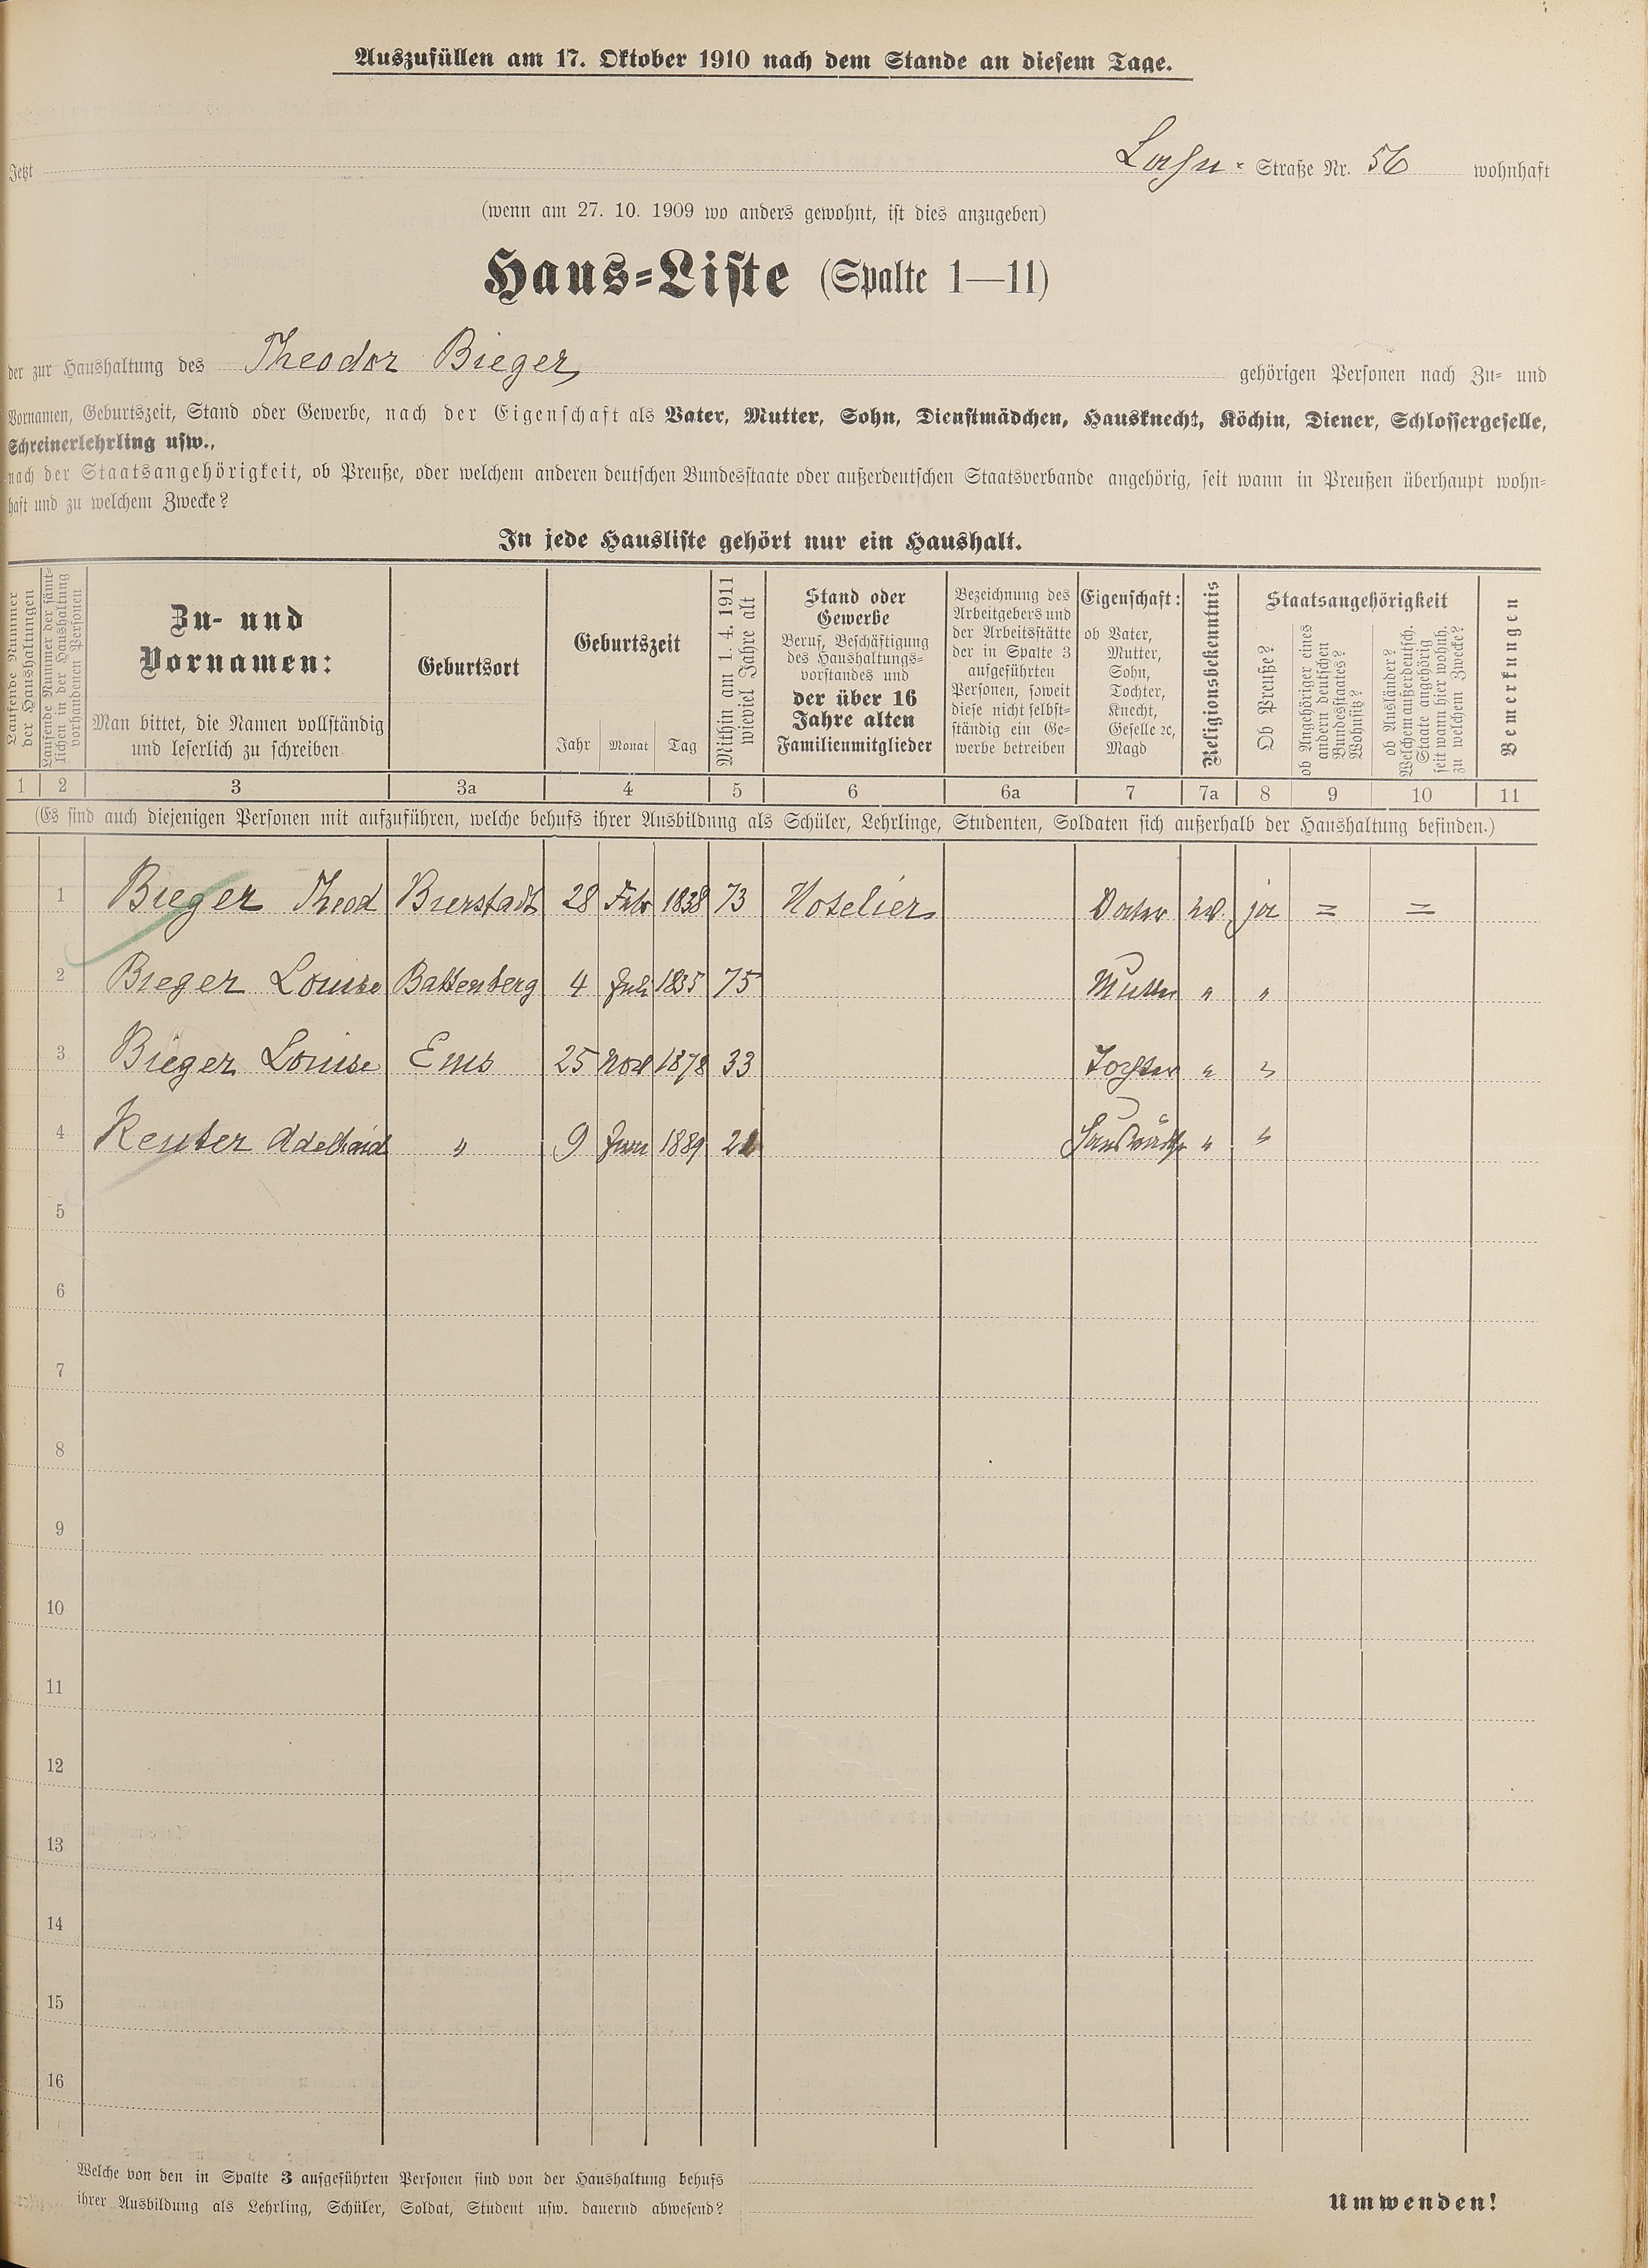 Auszufüllen am 17. Oktober 1910 nach dem Stande an diesem Tage.
Jetzt Lahn- Straße Nr. 56 wohnhaft
(wenn am 27. 10. 1909 wo anders gewohnt, ist dies anzugeben)
Haus-Liste (Spalte 1—11)
der zur Haushaltung des Theodor Bieger, gehörigen Personen nach Zu- und
Vornamen, Geburtszeit, Stand oder Gewerbe, nach der Eigenschaft als Vater, Mutter, Sohn, Dienstmädchen, Hausknecht, Köchin, Diener, Schlossergeselle,
Schreinerlehrling usw.,
nach der Staatsangehörigkeit, ob Preuße, oder welchem anderen deutschen Bundesstaate oder außerdeutschen Staatsverbande angehörig, seit wann in Preußen überhaupt wohn-
haft und zu welchem Zwecke?
In jede Hausliste gehört nur ein Haushalt.
Laufende Nummer
der Haushaltungen
Laufende Nummer der sämt-
lichen in der Haushaltung
vorhandenen Personen
Zu- und
Vornamen:
Man bittet, die Namen vollständig
und leserlich zu schreiben
Geburtsort
Geburtszeit
Jahr Monat Tag
Mithin am 1. 4. 1911
wieviel Jahre alt
Stand oder
Gewerbe
Beruf, Beschäftigung
des Haushaltungs-
vorstandes und
der über 16
Jahre alten
Familienmitglieder
Bezeichnung des
Arbeitgebers und
der Arbeitsstätte
der in Spalte 3
aufgeführten
Personen, soweit
diese nicht selbst-
ständig ein Ge-
werbe betreiben
Eigenschaft:
ob Vater,
Mutter,
Sohn,
Tochter,
Knecht,
Geselle ꝛc,
Magd
Religionsbekenntnis
Staatsangehörigkeit
Ob Preuße?
ob Angehöriger eines
andern deutschen
Bundesstaates?
Wohnsitz?
ob Ausländer?
Welchem außerdeutsch.
Staate angehörig
seit wann hier wohnh.
zu welchem Zwecke?
Bemerkungen
1 2 3 3a 4 5 6 6a 7 7a 8 9 10 11
(Es sind auch diejenigen Personen mit aufzuführen, welche behufs ihrer Ausbildung als Schüler, Lehrlinge, Studenten, Soldaten sich außerhalb der Haushaltung befinden.)
1 Bieger Theod Bierstadt 28 Febr 1838 73 Hotelier Vater ev. ja = =
2 Bieger Louise Battenberg 4 Juli 1835 75 Mutter " "
3 Bieger Louise Ems 25 Nov 1878 33 Tochter " "
4 Reuter Adelheid " 9 Juni 1889 21 " "
5
6
7
8
9
10
11
12
13
14
15
16
Welche von den in Spalte 3 aufgeführten Personen sind von der Haushaltung behufs
ihrer Ausbildung als Lehrling, Schüler, Soldat, Student usw. dauernd abwesend?
Umwenden!